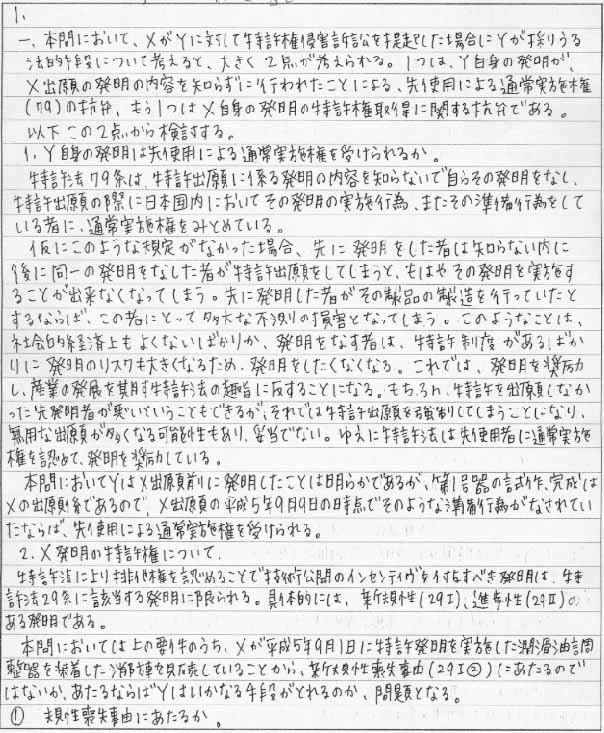 1.
一、本問において、XがYに対して特許権侵害訴訟を提起した場合にYが採りうる
法的手段について考えると、大きく2点が考えられる。1つは、Y自身の発明が、
X出願の発明の内容を知らずに行われたことによる、先使用による通常実施権
(79)の抗弁、もう1つはX自身の発明の特許権取得に関する抗弁である。
以下この2点から検討する。
1. Y自身の発明は先使用による通常実施権を受けられるか。
特許法79条は、特許出願に係る発明の内容を知らないで自らその発明をなし、
特許出願の際に日本国内においてその発明の実施行為、またその準備行為をして
いる者に、通常実施権をみとめている。
仮にこのような規定がなかった場合、先に発明をした者は知らない内に
後に同一の発明をなした者が特許出願をしてしまうと、もはやその発明を実施す
ることが出来なくなってしまう。先に発明した者がその製品の製造を行っていたと
するならば、この者にとって多大な不測の損害となってしまう。このようなことは、
社会的経済上もよくないばかりか、発明をなす者は、特許制度があるばか
りに発明のリスクも大きくなるため、発明をしたくなくなる。これでは、発明を奨励
し、産業の発展を期す特許法の趣旨に反することになる。もちろん、特許を出願しなか
った先発明者が悪いということもできるが、それでは特許出願を強制してしまうことになり、
無用な出願が多くなる可能性もあり、妥当でない。ゆえに特許法は先使用者に通常実施
権を認めて、発明を奨励している。
本問においてYはX出願前に発明したことは明らかであるが、第1号器の試作、完成は
Xの出願後であるので、X出願の平成5年9月9日の時点でそのような準備行為がなされてい
たならば、先使用による通常実施権を受けられる。
2. X発明の特許権について.
特許法により排他権を認めることで技術公開のインセンティヴを付与すべき発明は、特
許法29条に該当する発明に限られる。具体的には、新規性(29I)、進歩性(29II)の
ある発明である。
本問においては上の要件のうち、Xが平成5年9月1日に特許発明を実施した潤滑油調
整器を装着した消防車を販売していることから、新規性喪失事由(29I②)にあたるので
はないか、あたるならばYはいかなる手段がとれるのか、問題となる。
① 規性喪失事由にあたるか。